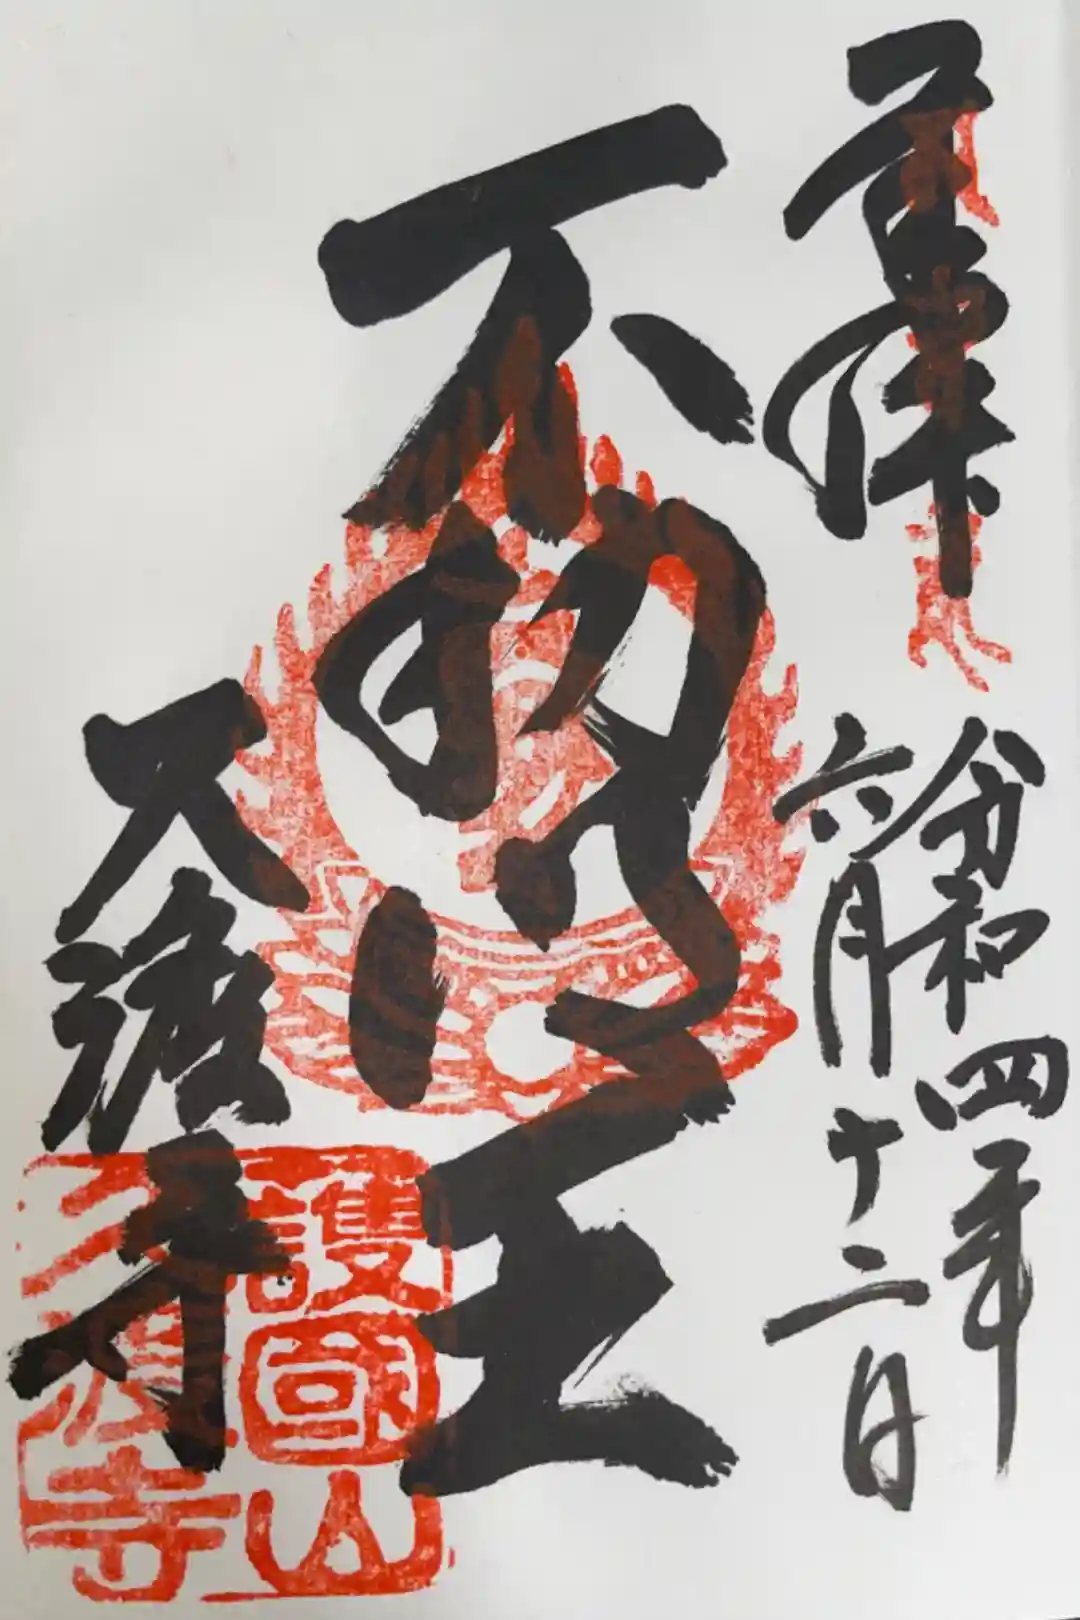 奉拝
令和四年
六月十二日
不動明王
寺
護國山
寺